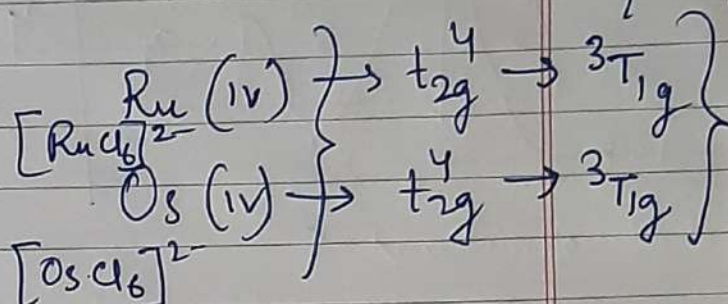 Ru (IV) } → t₂g⁴ → ³T₁g }
[RuCl₆]²⁻
Os (IV) → t₂g⁴ → ³T₁g
[OsCl₆]²⁻